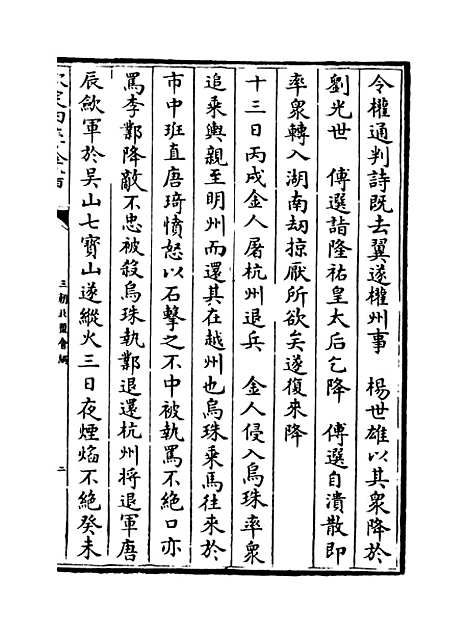 令權通判詩既去翼遂權州事　楊世雄以其衆降於
劉光世　傅選詣隆祐皇太后乞降　傅選自潰散即
率衆轉入湖南刼掠厭所欲矣遂復來降
十三日丙戌金人屠杭州退兵　金人侵入烏珠率衆
追乘輿親至明州而還其在越州也烏珠乘馬往來於
市中班直唐琦憤怒以石擊之不中被執罵不絕口亦
罵李鄴降敵不忠被殺烏珠執鄴退還杭州將退軍唐
辰歛軍於吳山七寶山遂縱火三日夜煙焰不絕癸未
欽定四庫全書
三朝北盟會編
二